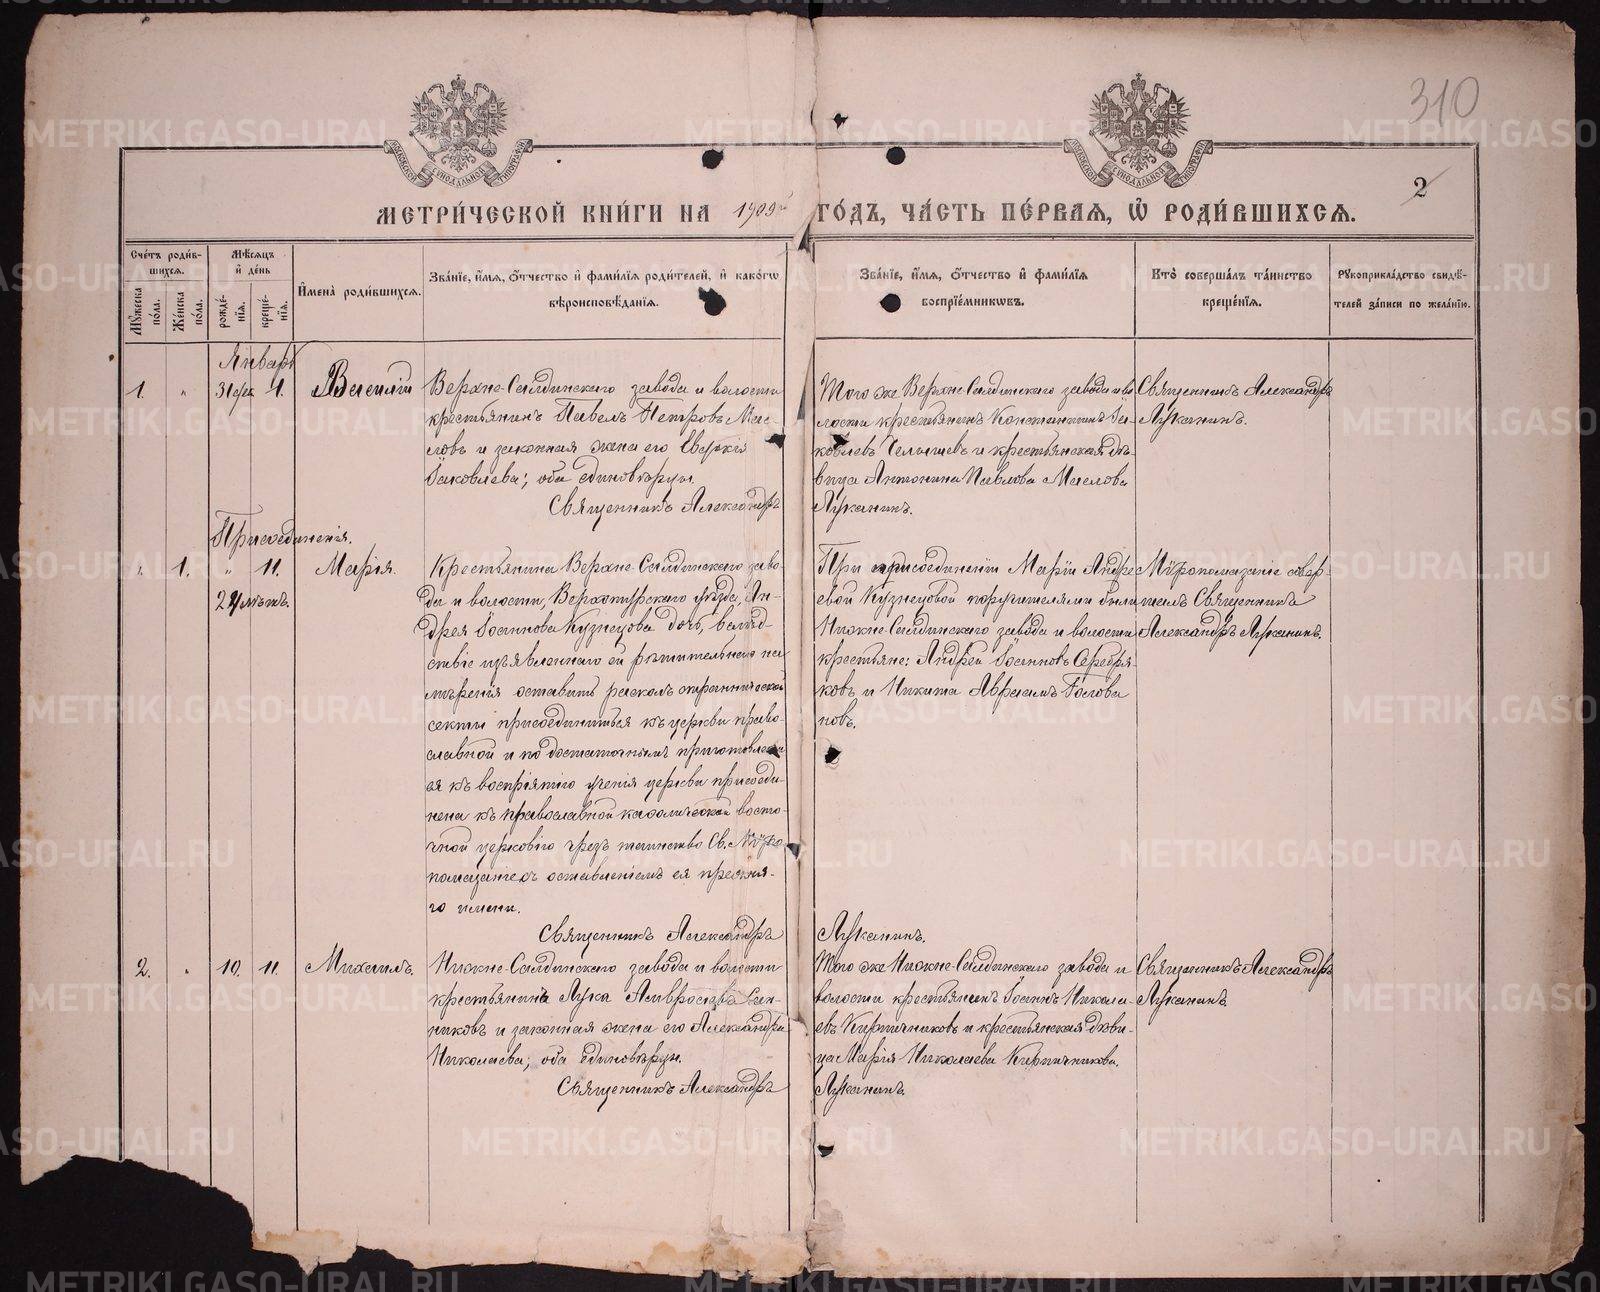 310
2
МЕТРИ́ЧЕСКОЙ КНИ́ГИ НА 1909 ГО́ДЪ, ЧА́СТЬ ПЕ́РВАЯ, Ѽ РОДИ́ВШИХСЯ.
Сче́тъ роди́в-
шихся.
Мѣ́сяцъ
и҆ де́нь
Мꙋ́жеска
по́ла.
Же́нска
по́ла.
рожде́-
нїя.
креще́-
нїя.
И҆мена̀ роди́вшихся.
Зва́нїе, и҆́мя, ѻ҆́тчество и҆ фами́лїя роди́телей, и҆ како́гѡ
вѣроисповѣ́данїя.
Зва́нїе, и҆́мя, ѻ҆́тчество и҆ фами́лїя
воспрїе́мникѡвъ.
Кто̀ соверша́лъ та́инство
креще́нїя.
Рꙋкоприкла́дство свидѣ́-
телей за́писи по жела́нїю.
Январь
1. " 31 дек 1. Василій
Верхне-Салдинскаго завода и волости
крестьянинъ Павелъ Петровъ Мас-
ловъ и законная жена его
Іаковлева; оба единовѣрцы.
Священникъ Александръ
Того же Верхне-Салдинскаго завода и во
лости крестьянинъ Константинъ Іа-
ковлевъ и крестьянская дѣ-
вица Антонина Павлова Маслова
Луканинъ.
Священникъ Александръ
Луканинъ.
Присоединенія.
" 1. " 11. Марія.
24 лѣтъ.
Крестьянина Верхне-Салдинскаго заво-
да и волости, Верхотурскаго уѣзда, Ан-
дрея Іоаннова Кузнецова дочь, вслѣд-
ствіе изъявленнаго ей рѣшительнаго на
мѣренія оставить расколъ страннической
секты присоединиться къ церкви право-
славной и по достаточномъ приготовленіи
ея къ воспріятію ученія церкви присоеди-
нена къ православной каѳолической восто-
чной церковію чрезъ таинство Св. Мѵро
помазанія съ оставленіемъ ея прежня-
го имени.
Священникъ Александръ
При присоединеніи Маріи Андре
евой Кузнецовой поручителями были
Нижне-Салдинскаго завода и волости
крестьяне: Андрей Іоанновъ Серебря
ковъ и Никита Авраамъ Голова
новъ.
Луканинъ.
Мѵропомазаніе совер-
шалъ Священникъ
Александръ Луканинъ.
2. " 10. 11. Михаилъ.
Нижне-Салдинскаго завода и волости
крестьянинъ Лука Амвросіевъ
никовъ и законная жена его Александра
Николаева; оба единовѣрцы.
Священникъ Александръ
Того же Нижне-Салдинскаго завода и
волости крестьянинъ Іоаннъ Никола-
евъ Кирпичниковъ и крестьянская дѣви-
ца Марія Николаева Кирпичникова.
Луканинъ.
Священникъ Александръ
Луканинъ
METRIKI.GASO-URAL.RU